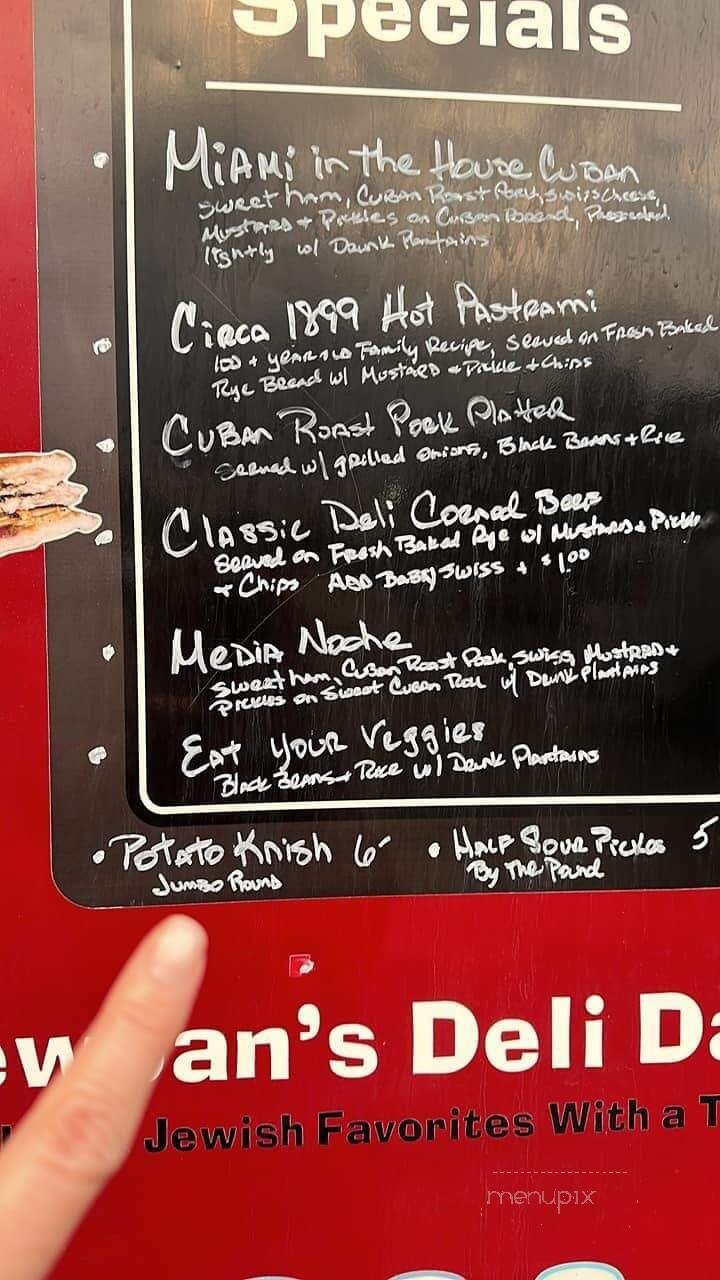 Specials
MiAMi in the House CUBAN
Sweet ham, CUBAN Roast Pork, Swiss Cheese,
Mustard + Pickles on Cuban Bread, Pressed
lightly w/ Drunk Plantains
Circa 1899 Hot Pastrami
100 + year old Family Recipe, Served on Fresh Baked
Rye Bread w/ Mustard + Pickle + Chips
CUBAN Roast Pork Platter
Served w/ grilled onions, Black Beans + Rice
Classic Deli Corned Beef
Served on Fresh Baked Rye w/ Mustard + Pickle
+ Chips ADD Baby Swiss + $1.00
Media Noche
Sweet ham, Cuban Roast Pork, Swiss, Mustard +
Pickles on Sweet Cuban Roll w/ Drunk Plantains
Eat Your Veggies
Black Beans + Rice w/ Drunk Plantains
• Potato Knish 6-
Jumbo Round
• Half Sour Pickles 5
By The Pound
an's Deli Da
Jewish Favorites With a T
menupix